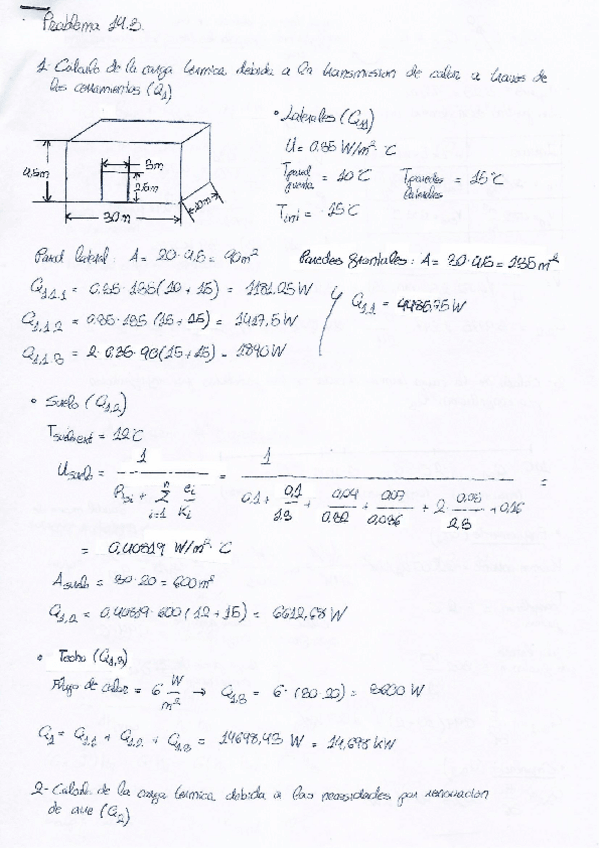 Problema 14.3.
1- Calculo de la carga termica debida a la transmision de calor a traves de
los cerramientos (Q1)
• Laterales (Q11)
U = 0.35 W/m² ºC
T pared = 10ºC T paredes = 15ºC
laterales
Tint = -15ºC
4,5m
3m
2.5m
20m
30m
Pared lateral: A = 20·4,5 = 90m² Paredes frontales: A = 30·4,5 = 135m²
Q1.1.1 = 0.35·135(10+15) = 1181.25W
Q1,1,2 = 0.35·135(15+15) = 1417,5W
Q1,1,3 = 2·0.35·90(15+15) = 1890W
y Q1,1 = 4488,75W
• Suelo (Q1,2)
Tsuelo ext = 12ºC
Usuelo = 1 / (Rsi + Σ(i=1, n) ei/Ki) = 1 / (0.1 + 0,1/1.3 + 0,04/0.32 + 0,07/0,036 + 2· 0,03/2,3 + 0,16) =
= 0,40819 W/m² ºC
Asuelo = 30·20 = 600m²
Q1,2 = 0,40819·600(12+15) = 6612,68W
• Techo (Q1,3)
Flujo de calor = 6 W/m² → Q1,3 = 6·(30·20) = 3600W
Q1 = Q1,1 + Q1,2 + Q1,3 = 14698,43 W = 14,698 kW
2- Calculo de la carga termica debida a las necesidades por renovacion
de aire (Q2)